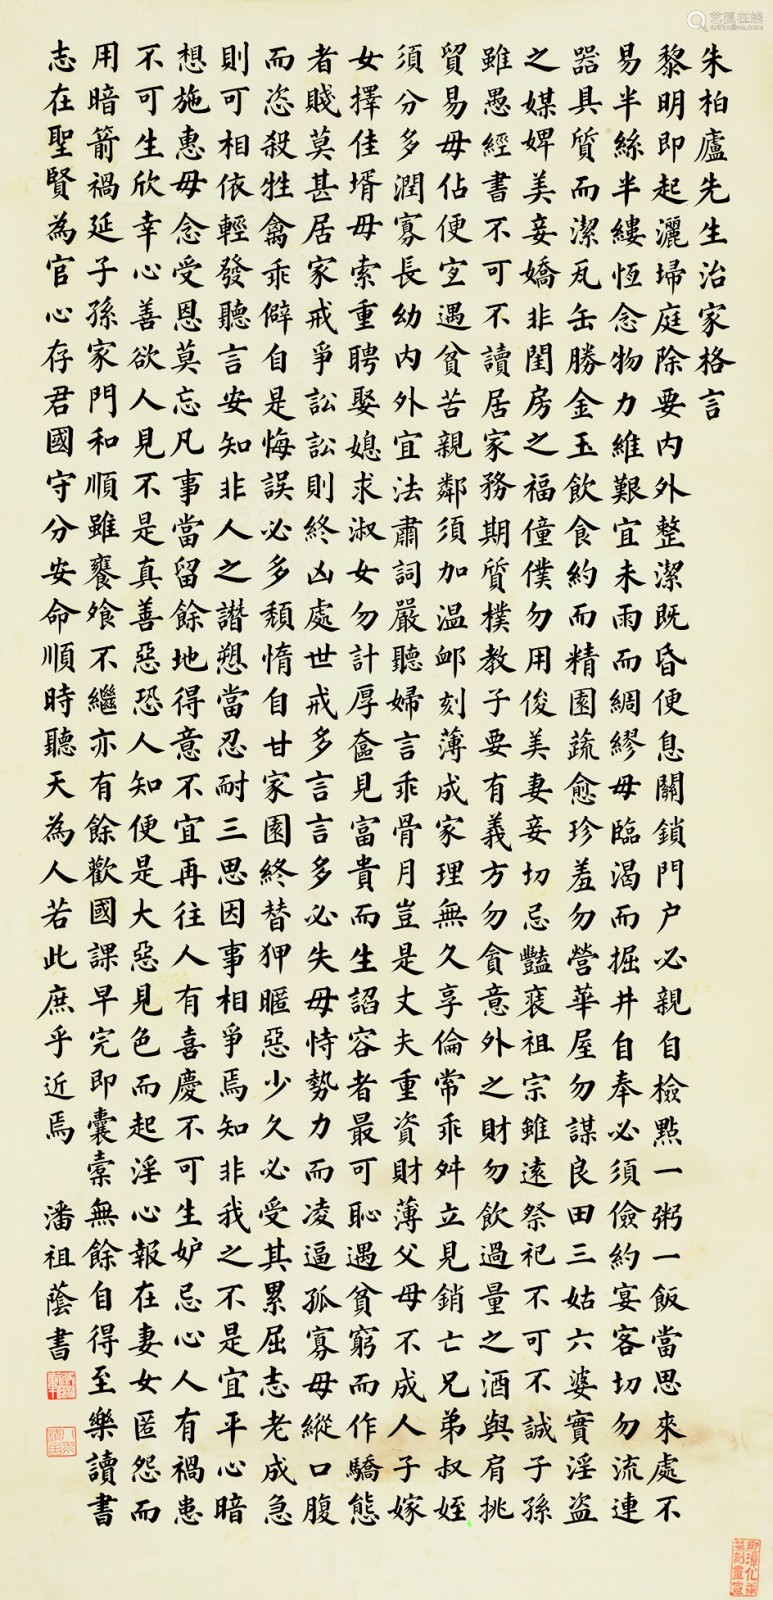 朱柏廬先生治家格言
黎明即起灑埽庭除要內外整潔既昏便息關鎖門户必親自檢點一粥一飯當思來處不
易半絲半縷恆念物力維艱宜未雨而綢繆毋臨渴而掘井自奉必須儉約宴客切勿流連
器具質而潔瓦缶勝金玉飲食約而精園蔬愈珍羞勿營華屋勿謀良田三姑六婆實淫盜
之媒婢美妾嬌非閨房之福僮僕勿用俊美妻妾切忌豔裝祖宗雖遠祭祀不可不誠子孫
雖愚經書不可不讀居家務期質樸教子要有義方勿貪意外之財勿飲過量之酒與肩挑
貿易毋佔便宜遇貧苦親鄰須加温卹刻薄成家理無久享倫常乖舛立見銷亡兄弟叔姪
須分多潤寡長幼內外宜法肅詞嚴聽婦言乖骨月豈是丈夫重資財薄父母不成人子嫁
女擇佳壻毋索重聘娶媳求淑女勿計厚奩見富貴而生諂容者最可恥遇貧窮而作驕態
者賤莫甚居家戒爭訟訟則終凶處世戒多言言多必失毋恃勢力而凌逼孤寡毋縱口腹
而恣殺牲禽乖僻自是悔誤必多頹惰自甘家園終替狎暱惡少久必受其累屈志老成急
則可相依輕發聽言安知非人之譖愬當忍耐三思因事相爭焉知非我之不是宜平心暗
想施惠毋念受恩莫忘凡事當留餘地得意不宜再往人有喜慶不可生妒忌心人有禍患
不可生欣幸心善欲人見不是真善惡恐人知便是大惡見色而起淫心報在妻女匿怨而
用暗箭禍延子孫家門和順雖饔飧不繼亦有餘歡國課早完即囊橐無餘自得至樂讀書
志在聖賢為官心存君國守分安命順時聽天為人若此庶乎近焉 潘祖蔭書